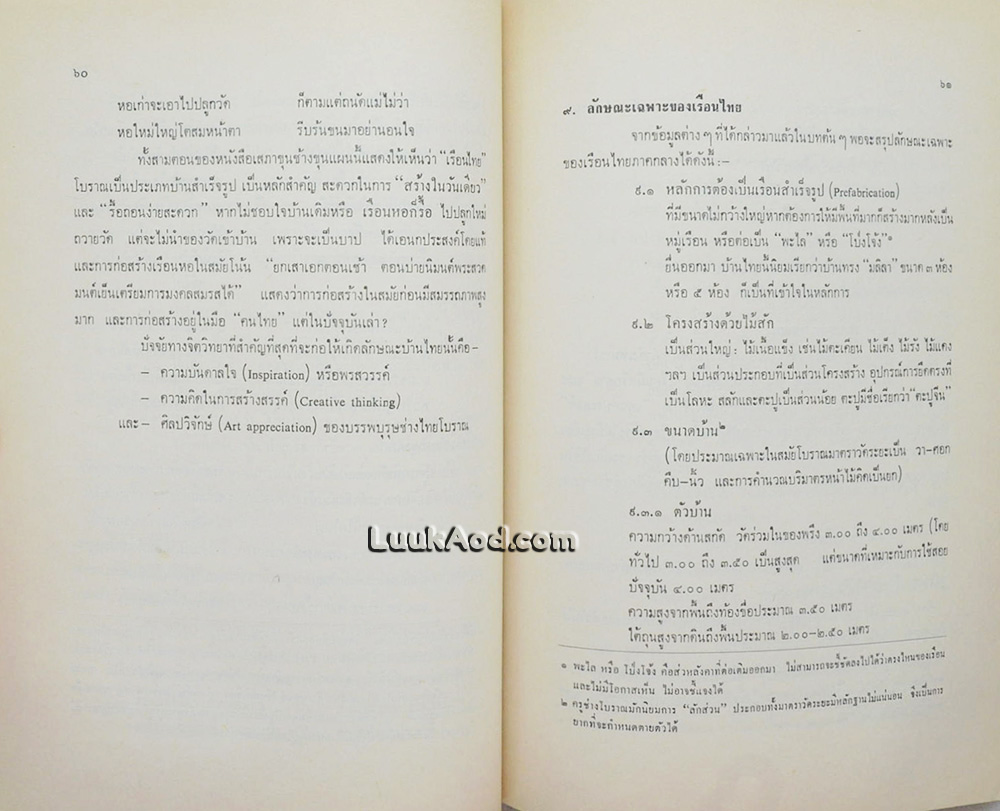 ๖๐
หอเก่าจะเอาไปปลูกวัด ก็ตามแต่ถนัดแม่ไม่ว่า
หอใหม่ใหญ่โตสมหน้าตา รีบร้นขนมาอย่านอนใจ
ทั้งสามตอนของหนังสือเสภาขุนช้างขุนแผนนั้นแสดงให้เห็นว่า “เรือนไทย”
โบราณเป็นประเภทบ้านสำเร็จรูป เป็นหลักสำคัญ สะดวกในการ “สร้างในวันเดียว”
และ “รื้อถอนง่ายสะดวก” หากไม่ชอบใจบ้านเดิมหรือ เรือนหอก็รื้อ ไปปลูกใหม่
ถวายวัด แต่จะไม่นำของวัดเข้าบ้าน เพราะจะเป็นบาป ได้เอนกประสงค์โดยแท้
และการก่อสร้างเรือนหอในสมัยโน้น “ยกเสาเอกตอนเช้า ตอนบ่ายนิมนต์พระสวด
มนต์เย็นเตรียมการมงคลสมรสได้” แสดงว่าการก่อสร้างในสมัยก่อนมีสมรรถภาพสูง
มาก และการก่อสร้างอยู่ในมือ “คนไทย” แต่ในปัจจุบันเล่า ?
ปัจจัยทางจิตวิทยาที่สำคัญที่สุดที่จะก่อให้เกิดลักษณะบ้านไทยนั้นคือ–
– ความบันดาลใจ (Inspiration) หรือพรสวรรค์
– ความคิดในการสร้างสรรค์ (Creative thinking)
และ – ศิลปวิจักษ์ (Art appreciation) ของบรรพบุรุษช่างไทยโบราณ
๖๑
๙. ลักษณะเฉพาะของเรือนไทย
จากข้อมูลต่าง ๆ ที่ได้กล่าวมาแล้วในบทต้น ๆ พอจะสรุปลักษณะเฉพาะ
ของเรือนไทยภาคกลางได้ดังนี้ :–
๙.๑ หลักการต้องเป็นเรือนสำเร็จรูป (Prefabrication)
ที่มีขนาดไม่กว้างใหญ่หากต้องการให้มีพื้นที่มากก็สร้างมากหลังเป็น
หมู่เรือน หรือต่อเป็น “พะไล” หรือ “โป่งโจ้ง”๑
ยื่นออกมา บ้านไทยนั้นนิยมเรียกว่าบ้านทรง “มลิลา” ขนาด ๓ ห้อง
หรือ ๕ ห้อง ก็เป็นที่เข้าใจในหลักการ
๙.๒ โครงสร้างด้วยไม้สัก
เป็นส่วนใหญ่ : ไม้เนื้อแข็ง เช่นไม้ตะเคียน ไม้เต็ง ไม้รัง ไม้แดง
ฯลฯ เป็นส่วนประกอบที่เป็นส่วนโครงสร้าง อุปกรณ์การยึดตรึงที่
เป็นโลหะ สลักและตะปูเป็นส่วนน้อย ตะปูมีชื่อเรียกว่า “ตะปูจีน”
๙.๓ ขนาดบ้าน๒
(โดยประมาณเฉพาะในสมัยโบราณมาตราวัดระยะเป็น วา–ศอก
คืบ–นิ้ว และการคำนวณบริมาตรหน้าไม้คิดเป็นยก)
๙.๓.๑ ตัวบ้าน
ความกว้างด้านสกัด วัดร่วมในของพรึง ๓.๐๐ ถึง ๔.๐๐ เมตร (โดย
ทั่วไป ๓.๐๐ ถึง ๓.๕๐ เป็นสูงสุด แต่ขนาดที่เหมาะกับการใช้สอย
ปัจจุบัน ๔.๐๐ เมตร
ความสูงจากพื้นถึงท้องขื่อประมาณ ๓.๕๐ เมตร
ใต้ถุนสูงจากดินถึงพื้นประมาณ ๒.๐๐–๒.๕๐ เมตร
๑ พะไล หรือ โป่งโจ้ง คือส่วหลังคาที่ต่อเติมออกมา ไม่สามารถจะชี้ชัดลงไปได้ว่าตรงไหนของเรือน
และไม่มีโอกาสเห็น ไม่อาจชี้แจงได้
๒ ครูช่างโบราณมักนิยมการ “ลักส่วน” ประกอบทั้งมาตราวัดระยะมีหลักฐานไม่แน่นอน จึงเป็นการ
ยากที่จะกำหนดตายตัวได้
LuukAod.com